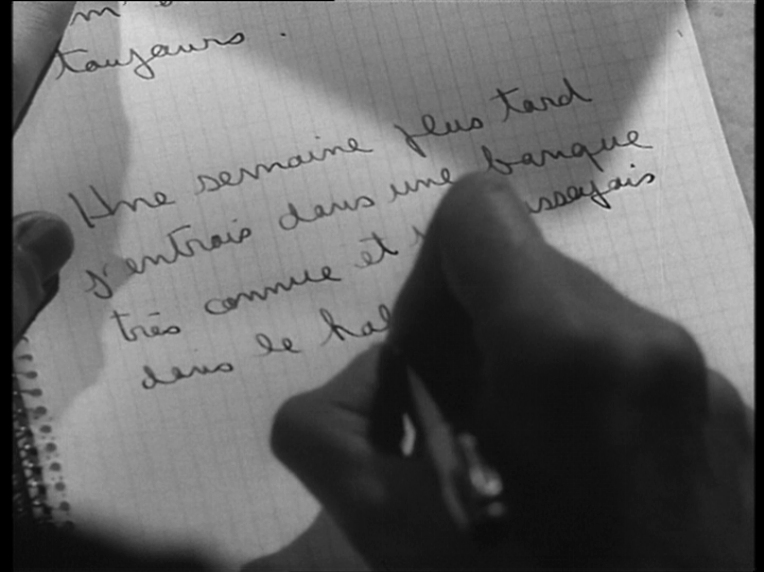 toujours.
Une semaine plus tard
j'entrais dans une banque
très connue et m'asseyais
dans le hal